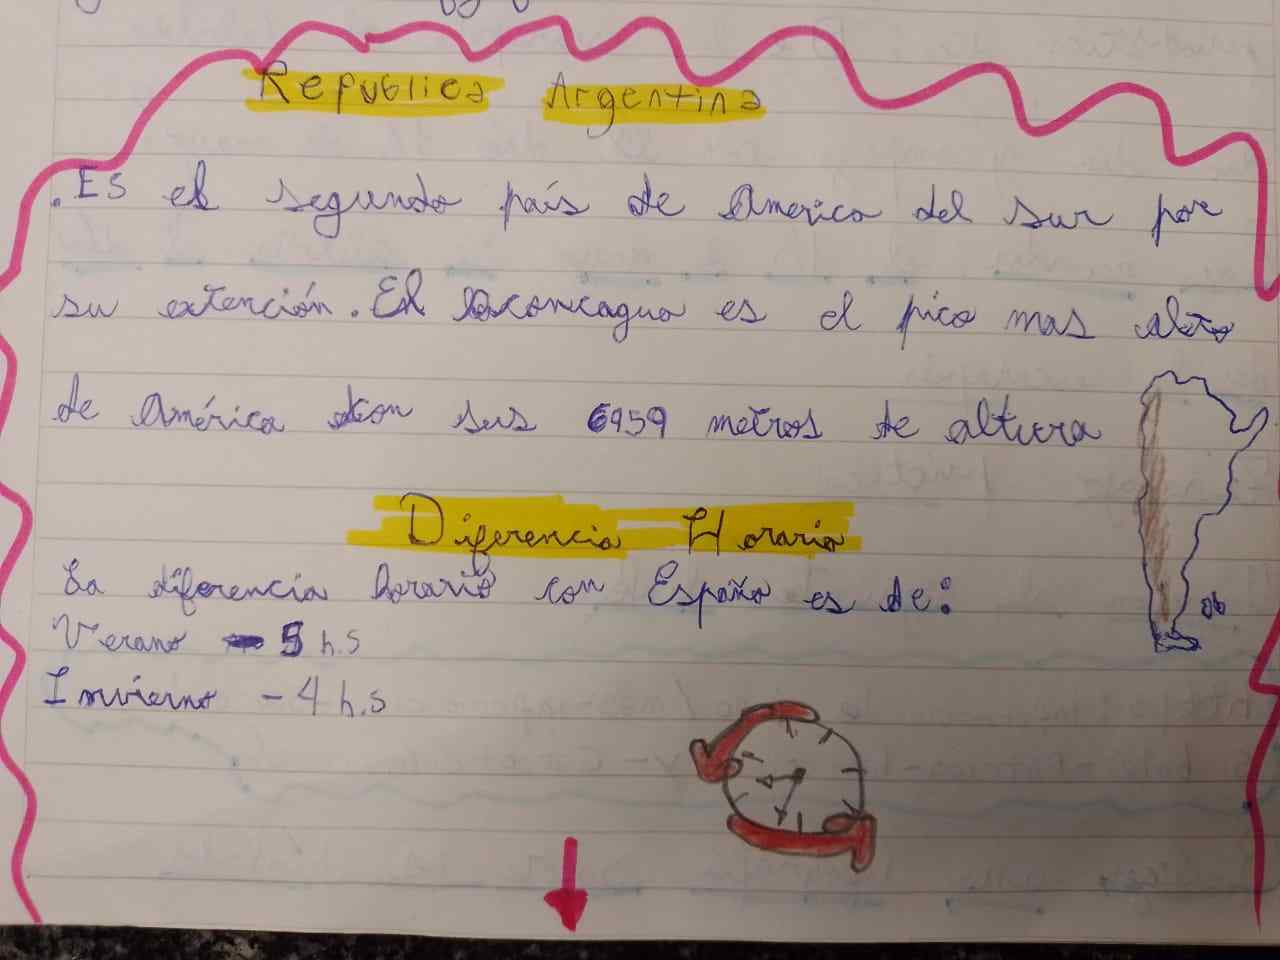 Republica Argentina
.Es el segundo país de America del sur por
su extención. El aconcagua es el pico mas alto
de américa con sus 6959 metros de altura
Diferencia Horaria
La diferencia horario con España es de:
Verano - 5 h.s
Invierno - 4 h.s